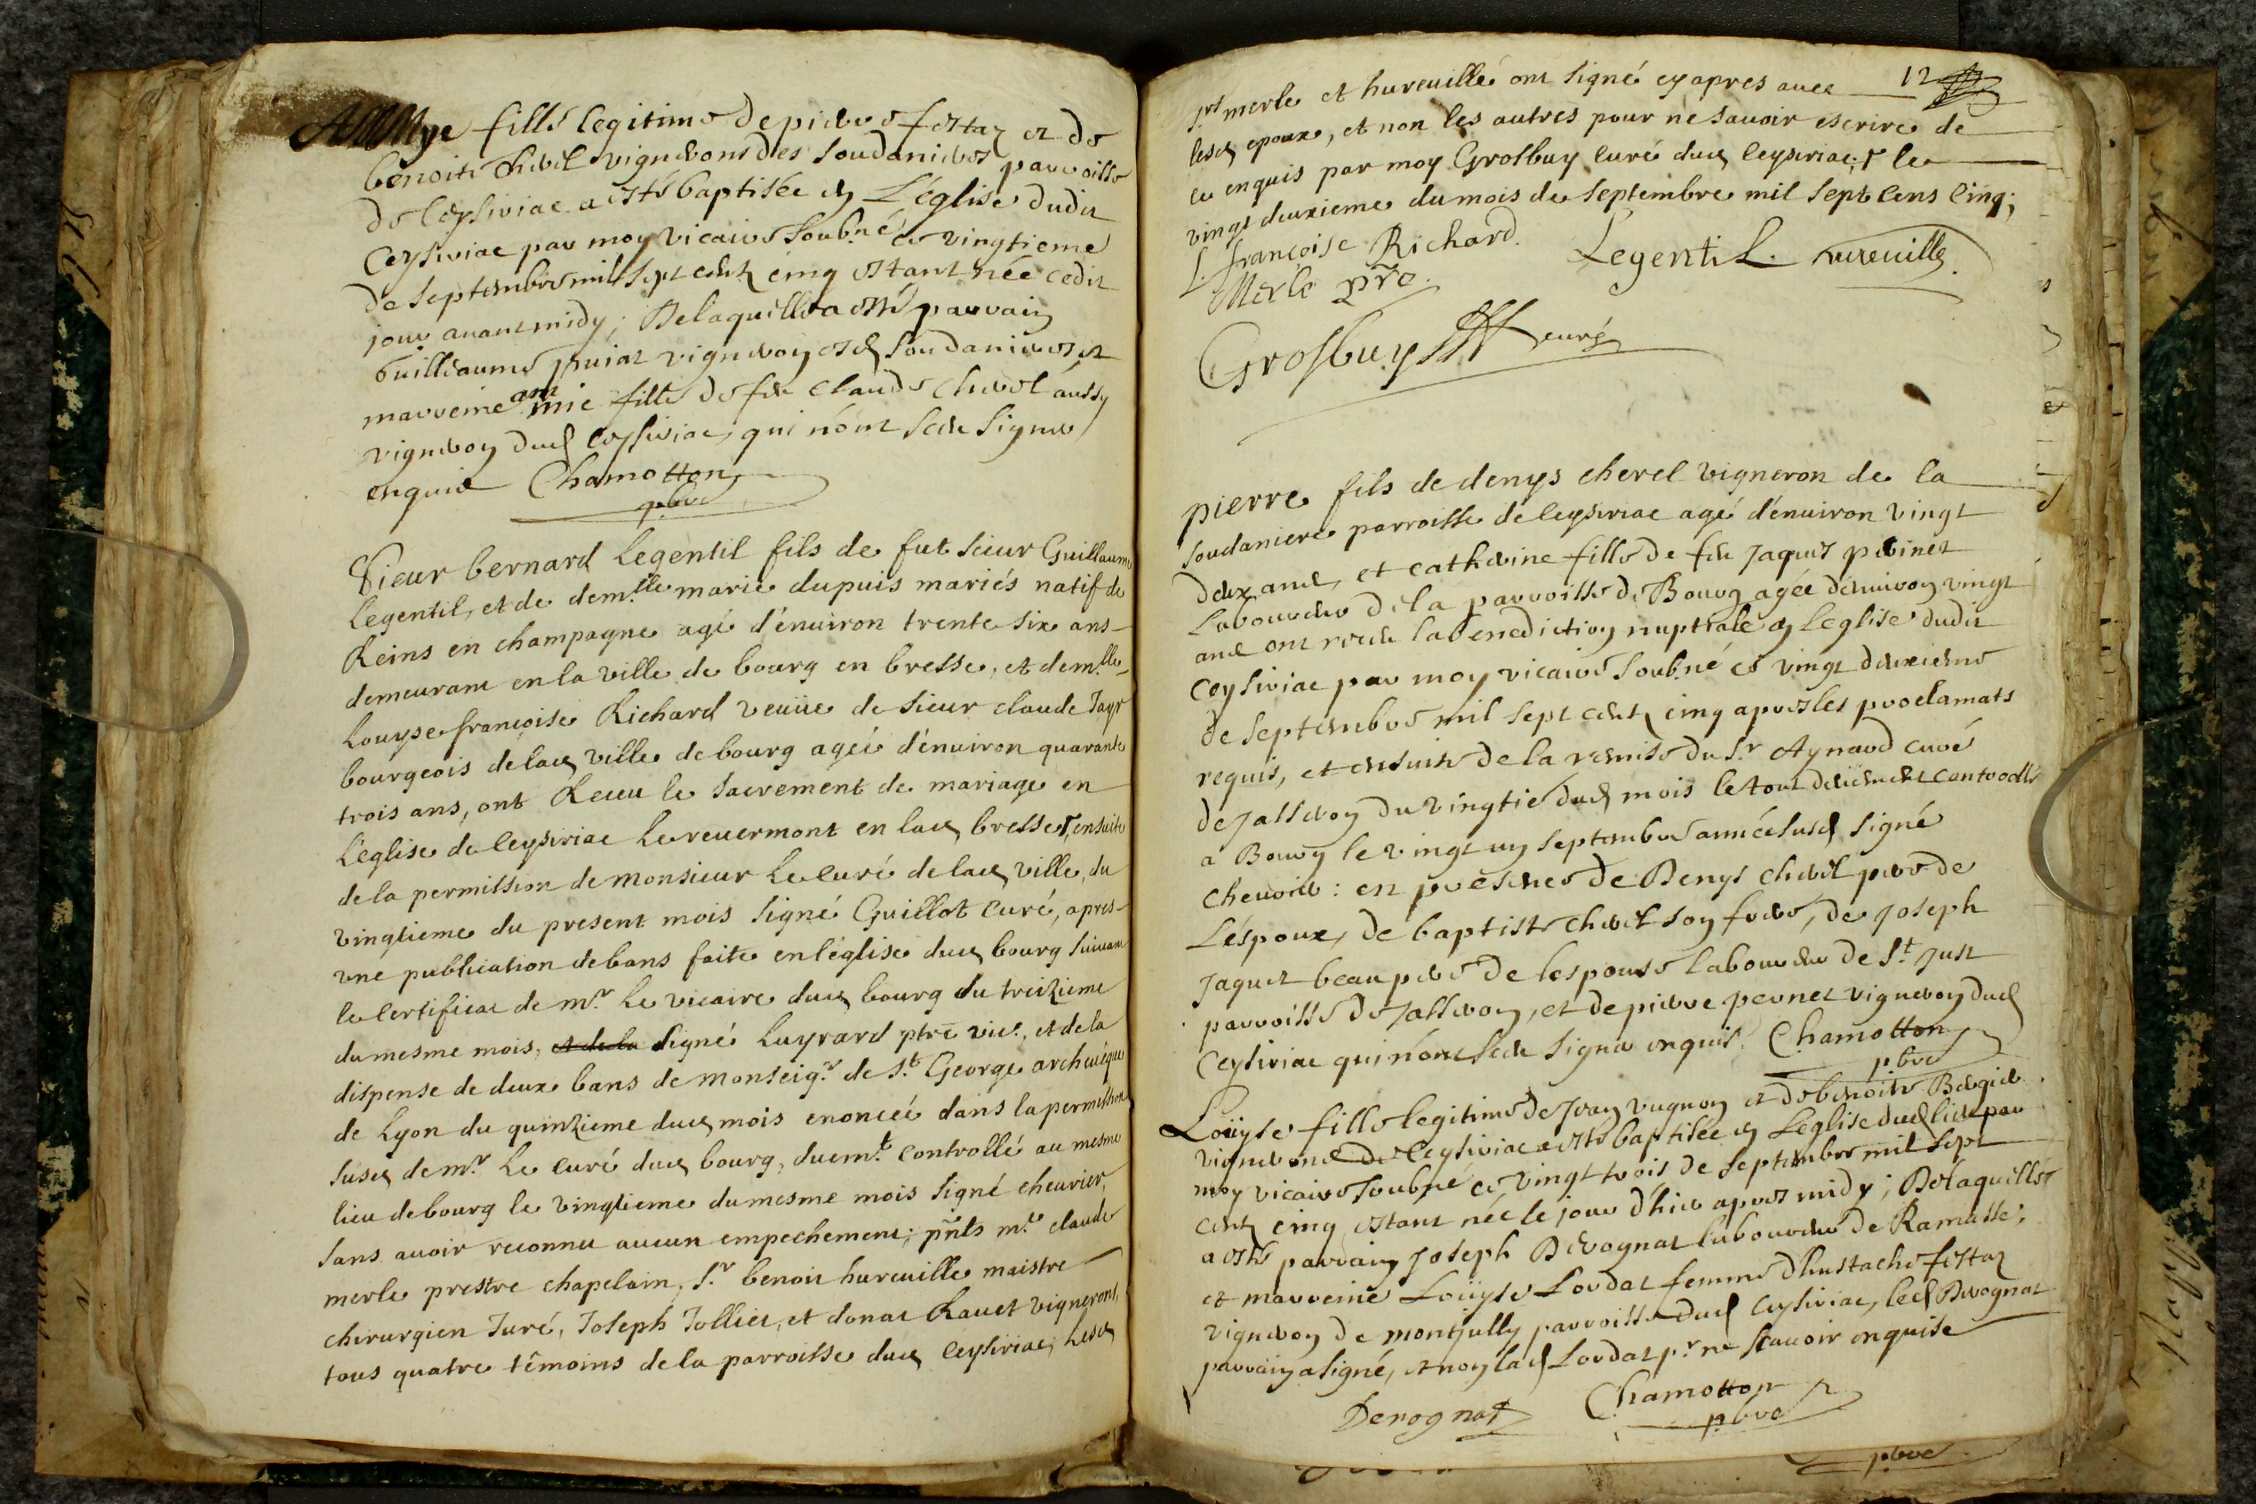 fille legitime de pierre festaz et de
benoite cherel vignerons des Soudanieres parroisse
de Ceyseriac a esté baptisée en L'église dudit
Ceyseriac par moy vicaire Soub.né ce vingtieme
de septembre mil sept centz cinq estant née cedit
jour avant midy; De laquelle a esté parrain
Guillaume puiat vigneron esd Soudanieres et
marreine amie fille de feu Claude Cherel aussy
vigneron dud Ceyseriac, qui n'ont sceu signer
enquis Chamotton
pbre
Sieur bernard Legentil fils de fut sieur Guillaume
Legentil, et de dem.lle marie dupuis mariés natif de
Reins en champagne agé d'enuiron trente six ans
demeurant en la ville de bourg en bresse, et dem.lle
Louyse françoise Richard veuüe de sieur claude Tayr
bourgeois de lad ville de bourg ageé d'enuiron quarante
trois ans, ont Receu le sacrement de mariage en
L'église de Ceyseriac Le reuermont en lad bresse, ensuite
de la permission de monsieur Le curé de lad ville, du
vingtieme du present mois signé Guillot curé, apres
vne publication de bans faite en l'église dud bourg suiuant
le certificat de m.r Le vicaire dud bourg du treizieme
du mesme mois, et de la signé Luyrard ptre vic.e, et de la
dispense de deux bans de monseig.r de s.t George archeuéque
de Lyon du quinzieme dud mois enonceé dans la permission
susd de m.r Le curé dud bourg, duem.t controllé au mesme
lieu de bourg le vingtieme du mesme mois signé cheurier,
sans auoir reconnu aucun empechement; pñts m.re claude
merle prestre chapelain, s.r benoit hureuille maistre
chirurgien Juré, Joseph Jollier, et donat Rauet vignerons,
tous quatre témoins de la parroisse dud Ceyseriac; Lesd
12
srs merle et hureuillé ont signé cy apres auec
lesd epoux, et non les autres pour ne sauoir escrire de
ce enquis par moy Grosbuy curé dud Ceyseriac, le
vingt deuxieme du mois de septembre mil sept cens cinq;
L. françoise Richard. Legentil. hureuille.
Merle pre.
Grosbuy curé
pierre fils de denys cherel vigneron de la
soudaniere parroisse de Ceyseriac agé d'enuiron vingt
deux ans, et catherine fille de feu Jaques perinet
Laboureur de la parroisse de Bourg agée d'enuiron vingt
ans ont receu la benediction nuptiale en Leglise dudit
Ceyseriac par moy vicaire soub.né ce vingt deuxieme
de septembre mil sept centz cinq apres les proclamats
requis, et ensuite de la remise du s.r Aynard curé
de Jasseron du vingtie dud mois le tout deüement controollé
a Bourg le vingt un septembre année susd signé
cheuoier: en presence de Denys cherel pere de
L'éspoux, de baptiste cherel son frere, de Joseph
Jaquet beau pere de lespouse laboureur de S.t Just
parroisse de Jasseron, et de pierre peonet vigneron dud
Ceyseriac qui n'ont sceu signer enquis. Chamotton
pbre
Loüyse fille legitime de Jean vugnon et de benoite Bergier
vignerons de Ceyseriac a esté baptisée en Leglise dud lieu par
moy vicaire soubné ce vingt trois de septembre mil sept
centz cinq estant née le jour d'hier apres midy; De laquelle
a esté parrain Joseph Derognat laboureur de Ramasse;
et marreine Loüyse Lordat femme d'hustache festaz
vigneron de montjully parroisse dud Ceyseriac, led Derognat
parrain a signé, et non lad Lordat p.r ne scauoir enquise
Derognat Chamotton
pbre
pbre